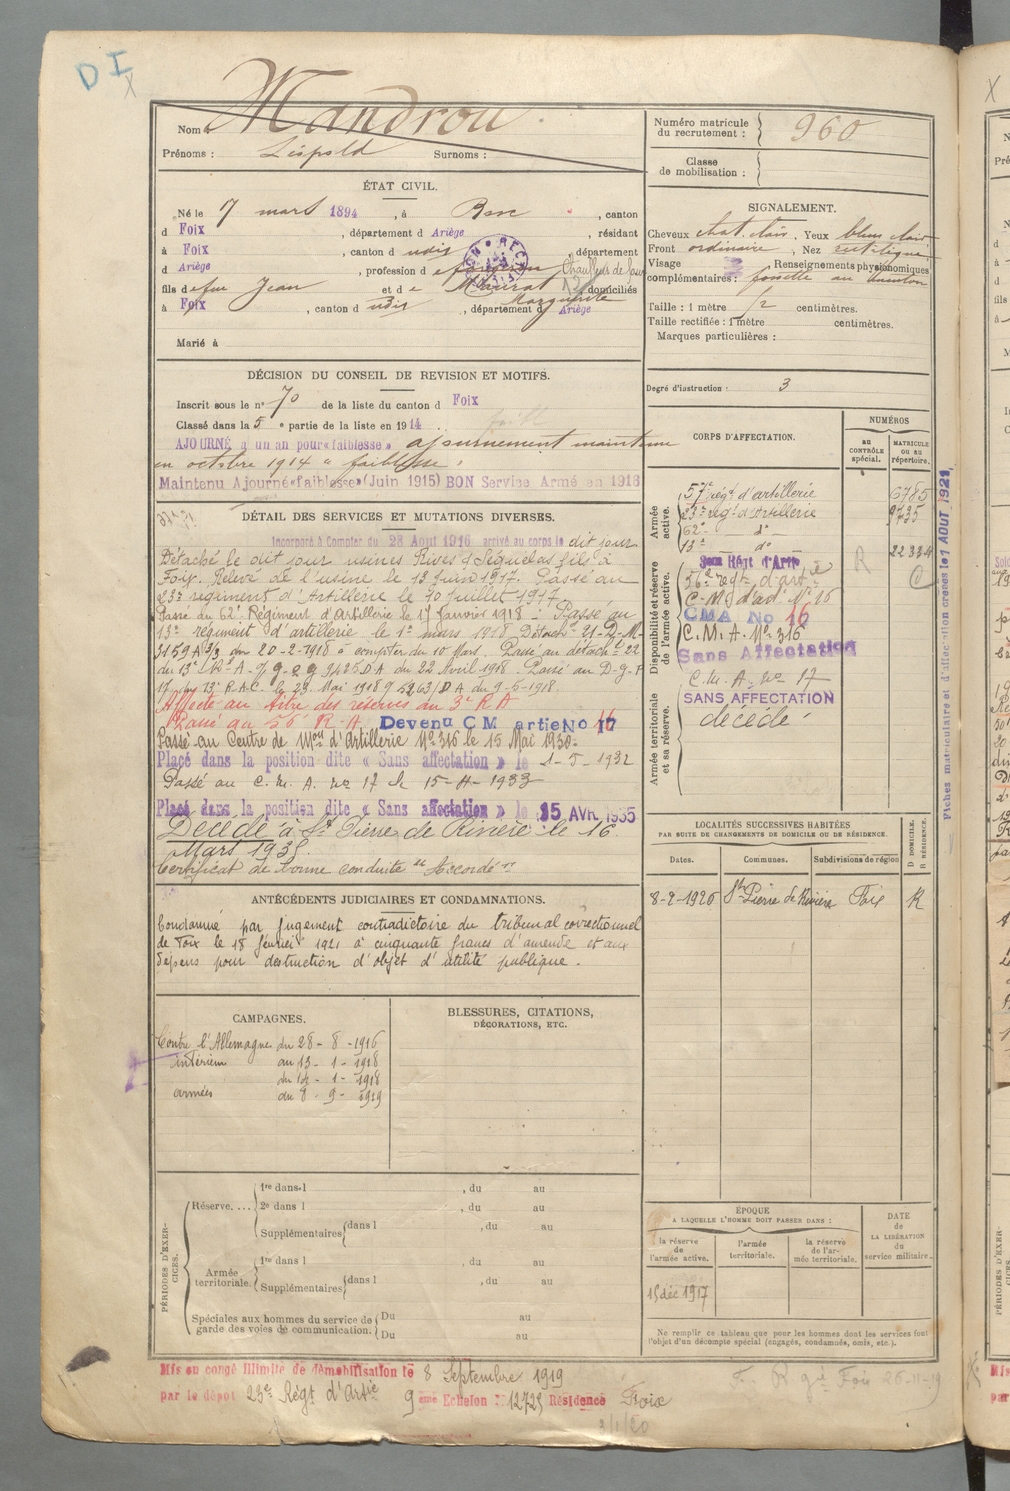 DI
X
Nom : Mandrou
Prénoms : Léopold Surnoms :
Numéro matricule du recrutement : 960
Classe de mobilisation :
ÉTAT CIVIL.
Né le 7 mars 1894, à Benac, canton
d Foix, département d Ariège, résidant
à Foix, canton d udit, département
d Ariège, profession de forgeron Chauffeur de four
fils de feu Jean et de Maurat Marguerite domiciliés
à Foix, canton d udit, département d Ariège
Marié à
SIGNALEMENT.
Cheveux chat. clair, Yeux bleu clair
Front ordinaire, Nez rectiligne
Visage Renseignements physionomiques
complémentaires : fossette au menton
Taille : 1 mètre 72 centimètres.
Taille rectifiée : 1 mètre centimètres.
Marques particulières :
Degré d'instruction : 3
DÉCISION DU CONSEIL DE REVISION ET MOTIFS.
Inscrit sous le n° 70 de la liste du canton d Foix
Classé dans la 5e partie de la liste en 1914
AJOURNÉ à un an pour «faiblesse» ajournement maintenu
en octobre 1914 "faiblesse"
Maintenu Ajourné «faiblesse» (Juin 1915) BON Service Armé en 1916
DÉTAIL DES SERVICES ET MUTATIONS DIVERSES.
Incorporé à Compter du 28 Aout 1916 arrivé au corps le dit jour
Détaché le dit jour usines Rives & Séquelas fils à
Foix. Relevé de l'usine le 13 Juin 1917. Passé au
23e régiment d'Artillerie le 10 juillet 1917
Passé au 62e Régiment d'Artillerie le 17 Janvier 1918 - Passé au
13e régiment d'artillerie le 1er mars 1918 Détach
3159 A 3/3 du 20-2-1918 à compter du 10 Mars. Passé au détacht 22
du 13e R.A. 9425 DA du 22 Avril 1918 Passé au D.G.F
17 du 13e R.A.C. le 23 Mai 1918 5263/DA du 9-5-1918.
Affecté au titre des réserves au 3e R A
Passé au 56e R.A. Devenu C M artie No 16
Passé au Centre de Mon d'Artillerie No 316 le 15 Mai 1930.
Placé dans la position dite « Sans affectation » le 1-5-1932
Passé au C. M. A. no 17 le 15-4-1933
Placé dans la position dite « Sans affectation » le 15 AVR. 1935
Décédé à St Pierre de Rivière le 16
Mars 1938.
Certificat de bonne conduite "Accordé"
CORPS D'AFFECTATION.
NUMÉROS
au CONTRÔLE spécial.
MATRICULE ou au répertoire.
Armée active.
57e rég. d'artillerie 6785
23e rég. d'artillerie 9735
62e d°
13e d° 22334
Disponibilité et réserve de l'armée active.
Régt d'Artie
R
56e régt d'artie C
C.M. d'art. No 16
CMA No 16
C.M.A. No 316
Sans Affectation
Armée territoriale et sa réserve.
C. M. A. no 17
SANS AFFECTATION
décédé
Fiches matriculaire et d'affection creées le 1 AOUT 1921
LOCALITÉS SUCCESSIVES HABITÉES
PAR SUITE DE CHANGEMENTS DE DOMICILE OU DE RÉSIDENCE.
D DOMICILE. R RÉSIDENCE.
Dates. Communes. Subdivisions de région
8-2-1926 St Pierre de Rivière Foix R
ANTÉCÉDENTS JUDICIAIRES ET CONDAMNATIONS.
Condamné par jugement contradictoire du tribunal correctionnel
de Foix le 18 février 1921 à cinquante francs d'amende et aux
dépens pour destruction d'objet d'utilité publique.
CAMPAGNES.
Contre l'Allemagne du 28-8-1916
intérieur au 13-1-1918
du 14-1-1918
armées du 8-9-1919
BLESSURES, CITATIONS,
DÉCORATIONS, ETC.
PÉRIODES D'EXERCICES.
Réserve.... 1re dans l, du au
2e dans l, du au
Supplémentaires dans l, du au
Armée territoriale. 1re dans l, du au
Supplémentaires dans l, du au
Spéciales aux hommes du service de garde des voies de communication. Du au
Du au
ÉPOQUE
A LAQUELLE L'HOMME DOIT PASSER DANS :
la réserve de l'armée active.
l'armée territoriale.
la réserve de l'armée territoriale.
DATE de LA LIBÉRATION du service militaire.
15 déc 1917
Ne remplir ce tableau que pour les hommes dont les services font
l'objet d'un décompte spécial (engagés, condamnés, omis, etc.).
Mis en congé illimité de démobilisation le 8 Septembre 1919
par le dépôt 23e Régt d'Artie 9ème Echelon N° 12725 Résidence Foix
3/1/20